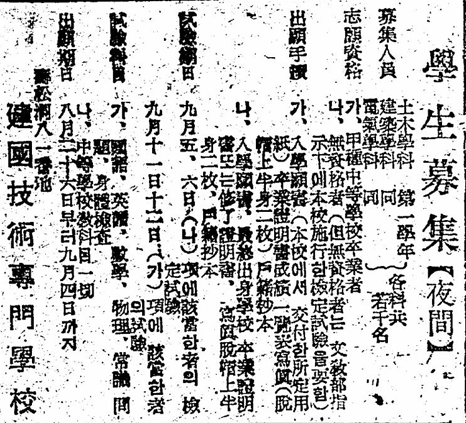 學生募集【夜間】
募集人員
土木學科 第一學年
建築學科 同
電氣學科 同
各科共
若干名
志願資格
가、甲種中等學校卒業者
나、無資格者(但無資格者는 文敎部指
示下에本校施行한檢定試驗을要함)
出願手續
가、入學願書(本校에서 交付한所定用
紙)卒業證明書成績一覽表寫眞(脫
帽上半身二枚)戶籍抄本
나、入學願書、最終出身學校 卒業證明
書또는修了證明書、寫眞脫帽上半
身二枚、戶籍抄本
試驗期日
九月五、六日(나)項에該當한者의 檢
定試驗
九月十一日十二日(가)項에 該當한者
의試驗
試驗科目
가、國語、英語、數學、物理、常識 問
題、身體檢査
나、中等學校敎科目一切
出願期日
八月二十六日早터九月四日까지
八一番地
建國技術專門學校